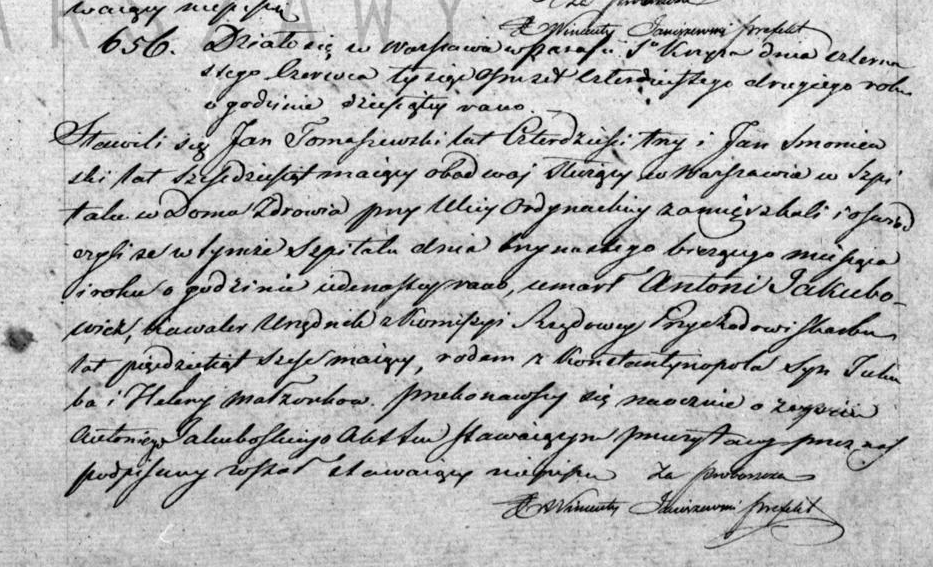 waiący niepiszą
Za Proboszcza
X Wincenty Janiszewski Prefekt
WARSZAWY
656. Działo się w Warszawie w parafii Sgo Krzyża dnia czterna
stego Czerwca tysiąc ośmset czterdziestego drugiego roku
o godzinie dziesiątey rano.
Stawili się Jan Tomaszewski lat Czterdzieści trzy i Jan
ski lat sześćdziesiąt maiący obadwaj Stużący w Warszawie w Szpi
talu w Domu Zdrowia przy Ulicy Ordynackiey zamieszkali i oświad
czyli że w tymże Szpitalu dnia trzynastego bieżącego miesiąca
i roku o godzinie iedenastey rano, umarł Antoni Jakubo-
wicz, Kawaler Urzędnik z Kommissyi Rządowey Przychodow i Skarbu
lat pięćdziesiąt sześć maiący, rodem z Konstantynopola Syn Jaku
ba i Heleny małżonkow. Przekonawszy się naocznie o zeyściu
Antoniego Jakubowskiego Akt ten stawaiącym przeczytany przez nas
podpisany został stawaiący niepiszą Za Proboszcza
X Wincenty Janiszewski Prefekt